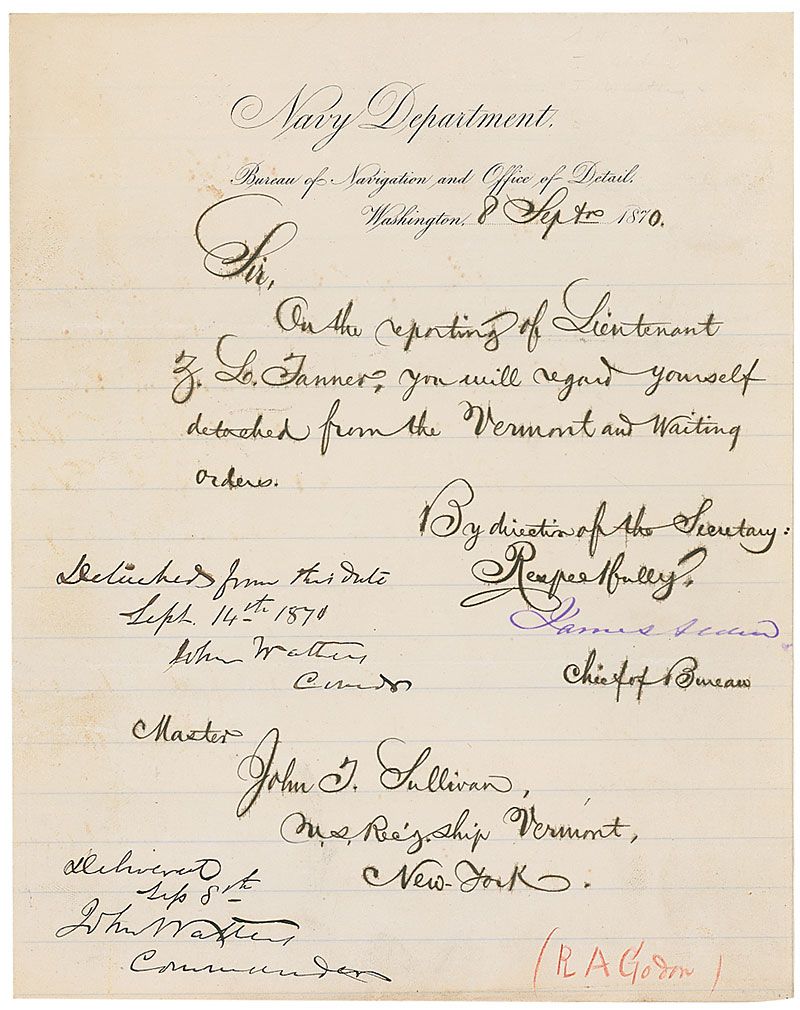 Navy Department.
Bureau of Navigation and Office of Detail.
Washington, 8 Septr 1870.
Sir,
On the reporting of Lieutenant
Z. L. Tanner, you will regard yourself
detached from the Vermont and Waiting
orders.
By direction of the Secretary:
Respectfully,
James Alden
Chief of Bureau
Detached from this date
Sept. 14th 1870
John Watters
Comdr
Master
John T. Sullivan,
U.S. Rec'g. ship Vermont,
New-York.
Delivered
Sep 8th
John Watters
Commander
(R A Godon)